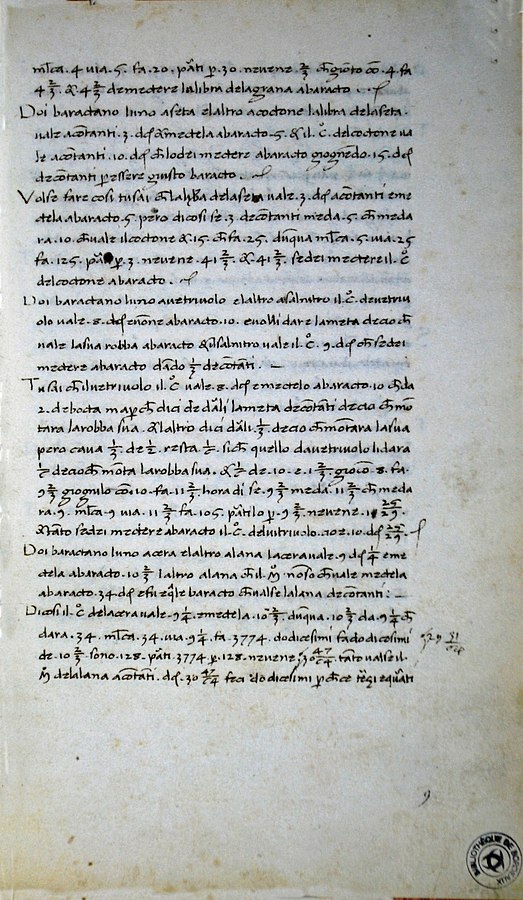 mł̃ca .4 via .5. fa .20. pãti p̱ .30. nevene .2/3 ch̃ gionto cõ .4. fa
4 2/3 . & .4 2/3 de mectere la libra dela grana abaracto .
Doi baractano l uno a seta el altro a coctone la libra dela seta .
vale acõtanti .3. d̃ & mectela abaracto .5. & il .C̊. del coctone va
le acõtanti .10. d̃ ch̃ lo dei mectere abaracto giognẽdo .15. d̃
de cõtanti p̱ essere giusto baracto .
Volse fare cosi tu sai ch̃ la libra dela seta vale .3. d̃ acõtanti e me
tela abaracto .5. pero di cosi se .3. de cõtanti me da .5. ch̃ me da
ra .10. ch̃ vale il coctone & .15. ch̃ fa .25. dũqua mł̃ca .5. via .25
fa .125. p̱ .3. nevene .41 2/3 & .41 2/3 . se dei mectere il .C̊
del coctone abaracto .
Doi baractano l uno a vetrivolo el altro a salnitro il .C̊. de vetriv
olo vale .8. d̃ abaracto .10. e voli dare la meta de cio ch̃
vale la sua robba abaracto & il salnitro vale il .C̊. 9. d̃ ch̃ se dei
mectere abaracto dãdo 1/3 de cõtanti . —
Tu sai ch̃ il vetrivolo il .C̊ vale .8. d̃ e mectelo abaracto .10 ch̃ da
2. de
tara la robba sua . & l altro dici dali .1/3. de cio ch̃ montara la sua
pero cava 1/3. de 1/2. resta si ch̃ quello da vetrivolo li dara
de cio ch̃ mõta la robba sua . & de .10. e .1 2/3 gio cõ .8. fa .
9 2/3 giognilo cõ .10. fa .11 2/3 hora di se .9 2/3 me da .11 2/3 ch̃ me da
ra .9. mł̃ca .9 via .11 2/3 fa .105. pãtilo p̱ .9 2/3 . nevene .10 25/29 .
& tãto se dei mectere abaracto il .C̊. del vitrivolo .10 e .10 d̃ 25/29 .
Doi baractano l uno a cera el altro a lana la cera vale .9 d̃ 1/4 e me
ctela abaracto .10 2/3 l altro a lana ch̃ il .M̊ ch̃ vale mectela
abaracto .34 d̃ baracto ch̃ valse la lana de cõtanti : —
Di cosi il .C̊ dela cera vale .9 1/4 . e mectela .10 2/3 . dũqua .10 2/3 da .9 1/4 ch̃
dara .34 mł̃ca .34 via .9 1/4 . fa .3774. dodicesimi fa dodicesimi
de .10 2/3 sono .128. pãti 3774 p̱ .128. nevene tãto valse il .
M̊ dela lana acõtati . d̃ .30 feci dodicesimi p̱ ch̃
9
BIBLIOTHÈQUE DE BORDEAUX